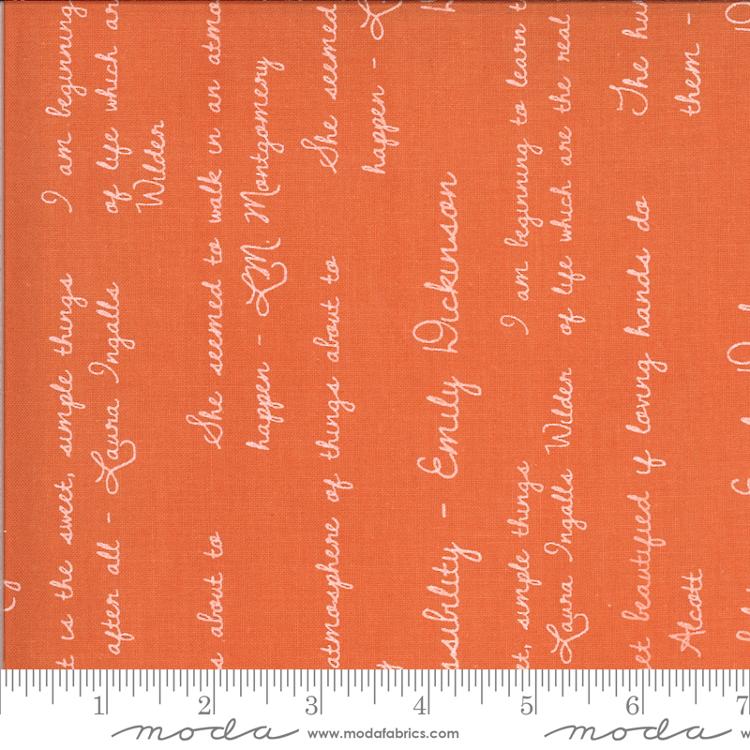 t is the sweet, simple things I am beginning
after all - Laura Ingalls of life which ar
Wilder
s about to She seemed to walk in an atmo
happen - L.M. Montgomery
atmosphere of things about to She seemed
happen - L
ssibility - Emily Dickinson
et, simple things I am beginning to learn t
Laura Ingalls Wilder of life which are the real
et beautified if loving hands do The hu
Alcott them -
1 2 3 4 5 6 7
moda www.modafabrics.com moda w